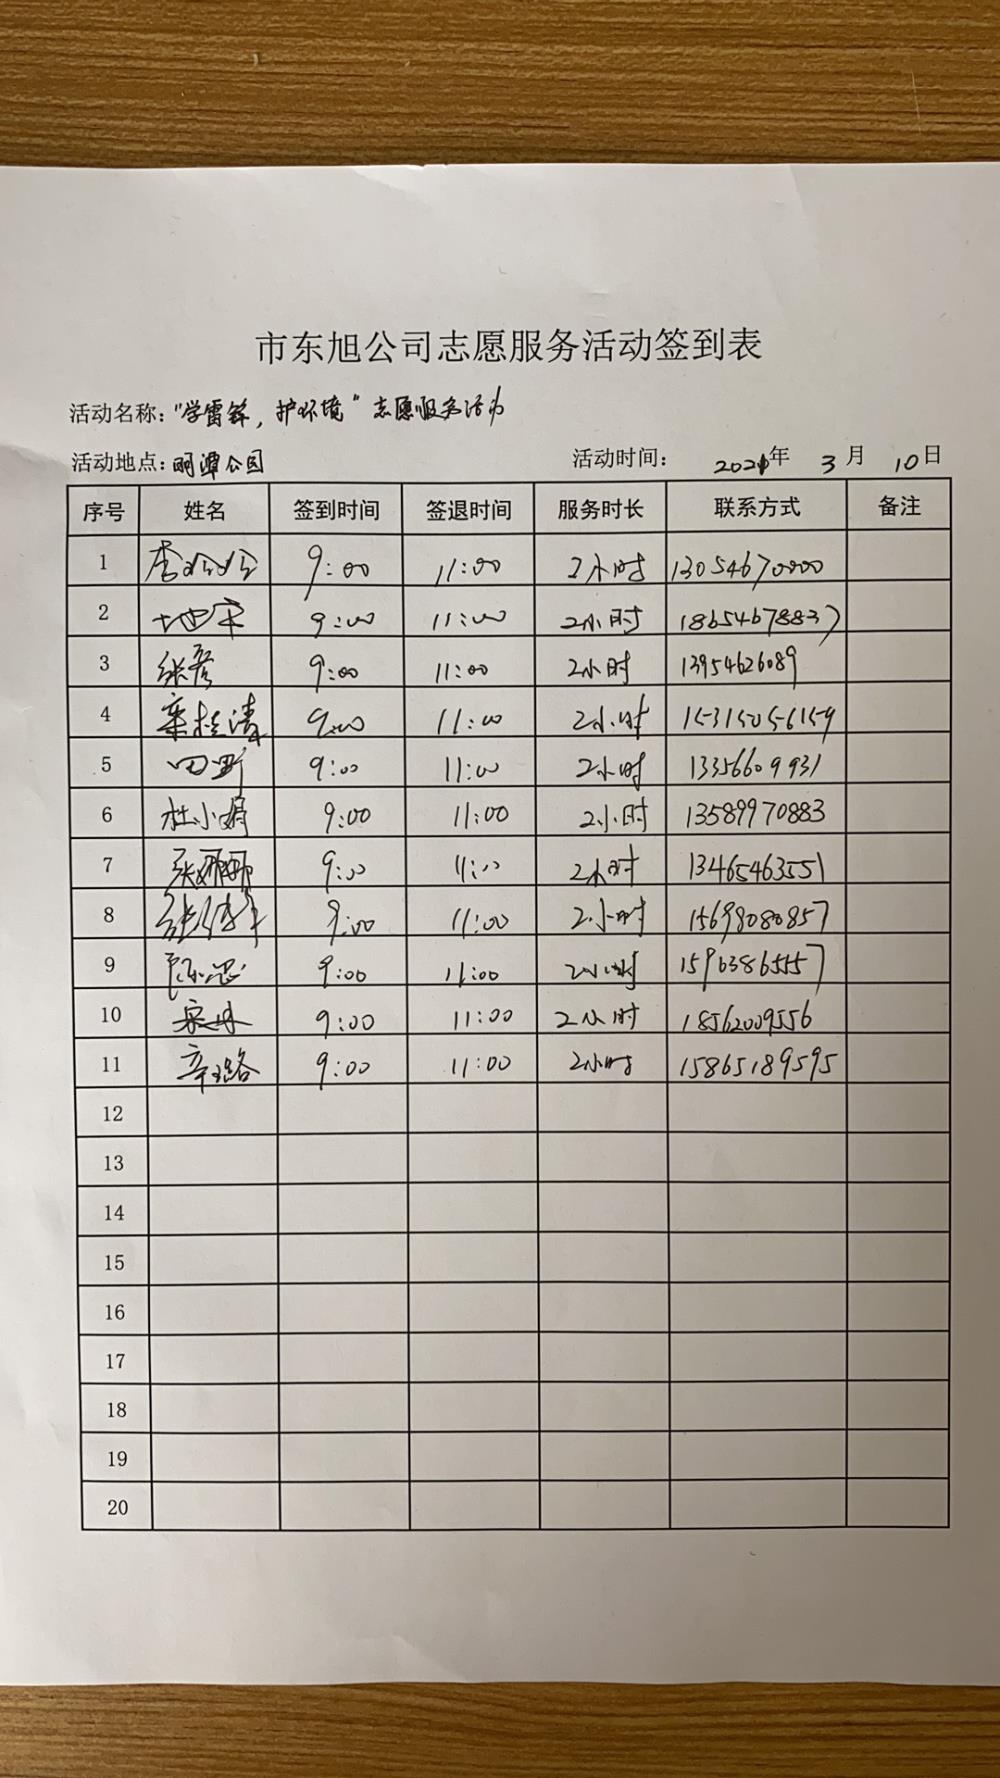 市东旭公司志愿服务活动签到表
活动名称："学雷锋，护环境"志愿服务活动
活动地点：明潭公园 活动时间： 2021年 3月 10日
序号 姓名 签到时间 签退时间 服务时长 联系方式 备注
1 李玲玲 9:00 11:00 2小时 13054670000
2 9:00 11:00 2小时 18654678837
3 张彦 9:00 11:00 2小时 13954626089
4 9:00 11:00 2小时 15315056159
5 田野 9:00 11:00 2小时 13356609931
6 杜小娟 9:00 11:00 2小时 13589970883
7 张娜娜 9:00 11:00 2小时 13465463551
8 9:00 11:00 2小时 15698080857
9 9:00 11:00 2小时 15963865557
10 宋丹 9:00 11:00 2小时 18562009556
11 辛璐 9:00 11:00 2小时 15865189595
12
13
14
15
16
17
18
19
20